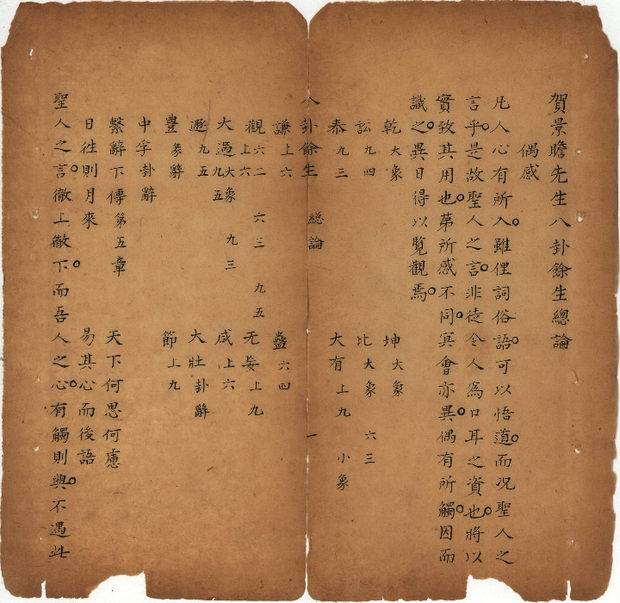 賀景瞻先生八卦餘生總論
偶感
凡人心有所入雖俚詞俗語可以悟道而況聖人之
言乎是故聖人之言非徒令人爲口耳之資也將以
實致其用也第所感不同寘會亦異偶有所觸因而
識之異日得以覽觀焉
乾大象 坤大象
訟九四 比大象 六三
泰九三 大有上九 小象
八卦餘生 總論 一
謙上六 蠱六四
觀六二 六三 九五 上六 无妄上九
大過大象 九三 九五 咸上六
遯九五 大壯卦辭
豐彖辭 節上九
中孚卦辭
繫辭下傳第五章 天下何思何慮
日往則月來 易其心而後語
聖人之言徹上徹下而吾人之心有觸則興不過此